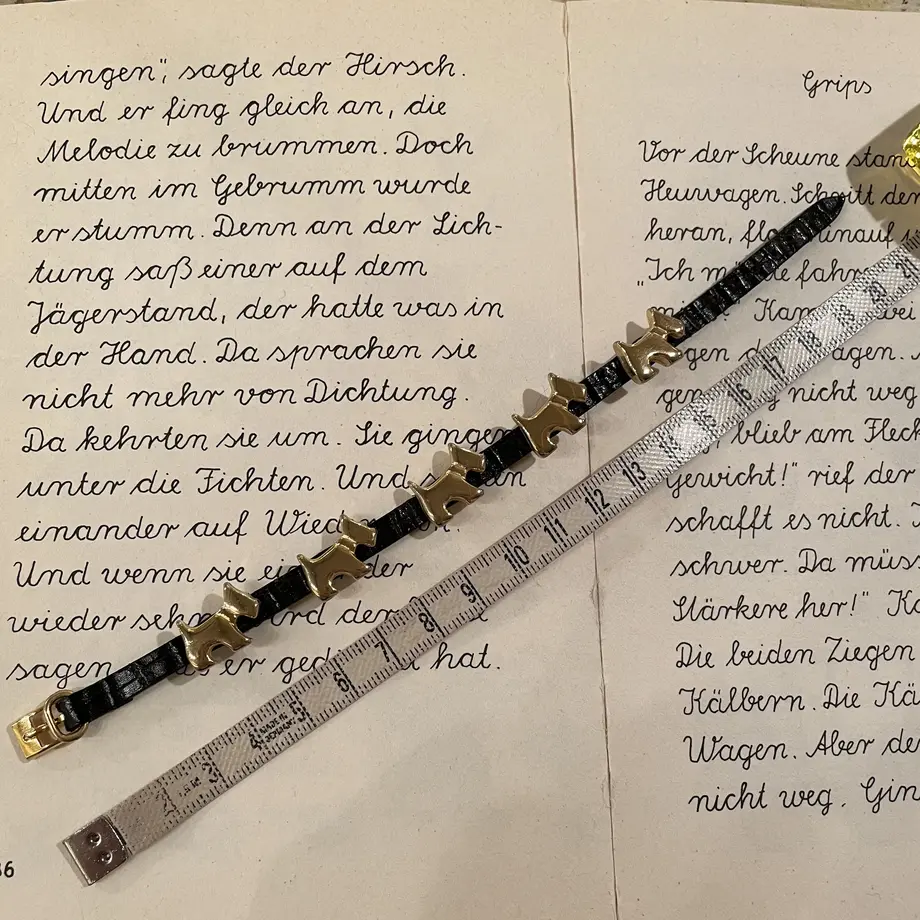 singen", sagte der Hirsch.
Und er fing gleich an, die
Melodie zu brummen. Doch
mitten im Gebrumm wurde
er stumm. Denn an der Lich-
tung saß einer auf dem
Jägerstand, der hatte was in
der Hand. Da sprachen sie
nicht mehr von Dichtung.
Da kehrten sie um. Sie gingen
unter die Fichten. Und
einander auf
Und wenn sie
wieder
sagen er hat.
36
Grips
Vor der Scheune
Heuwagen. Schritt der
heran, hinauf
„Ich
nicht weg
blieb am Fleck
Gewicht!" rief der
schafft es nicht.
schwer. Da
Stärkere her!"
Die beiden Ziegen
Kälbern. Die
Wagen. Aber
nicht weg.
3 4 5 6 7 8 9 10 11 12 13 14 15 16 17 18 19 20 21
MADE IN
GERMANY